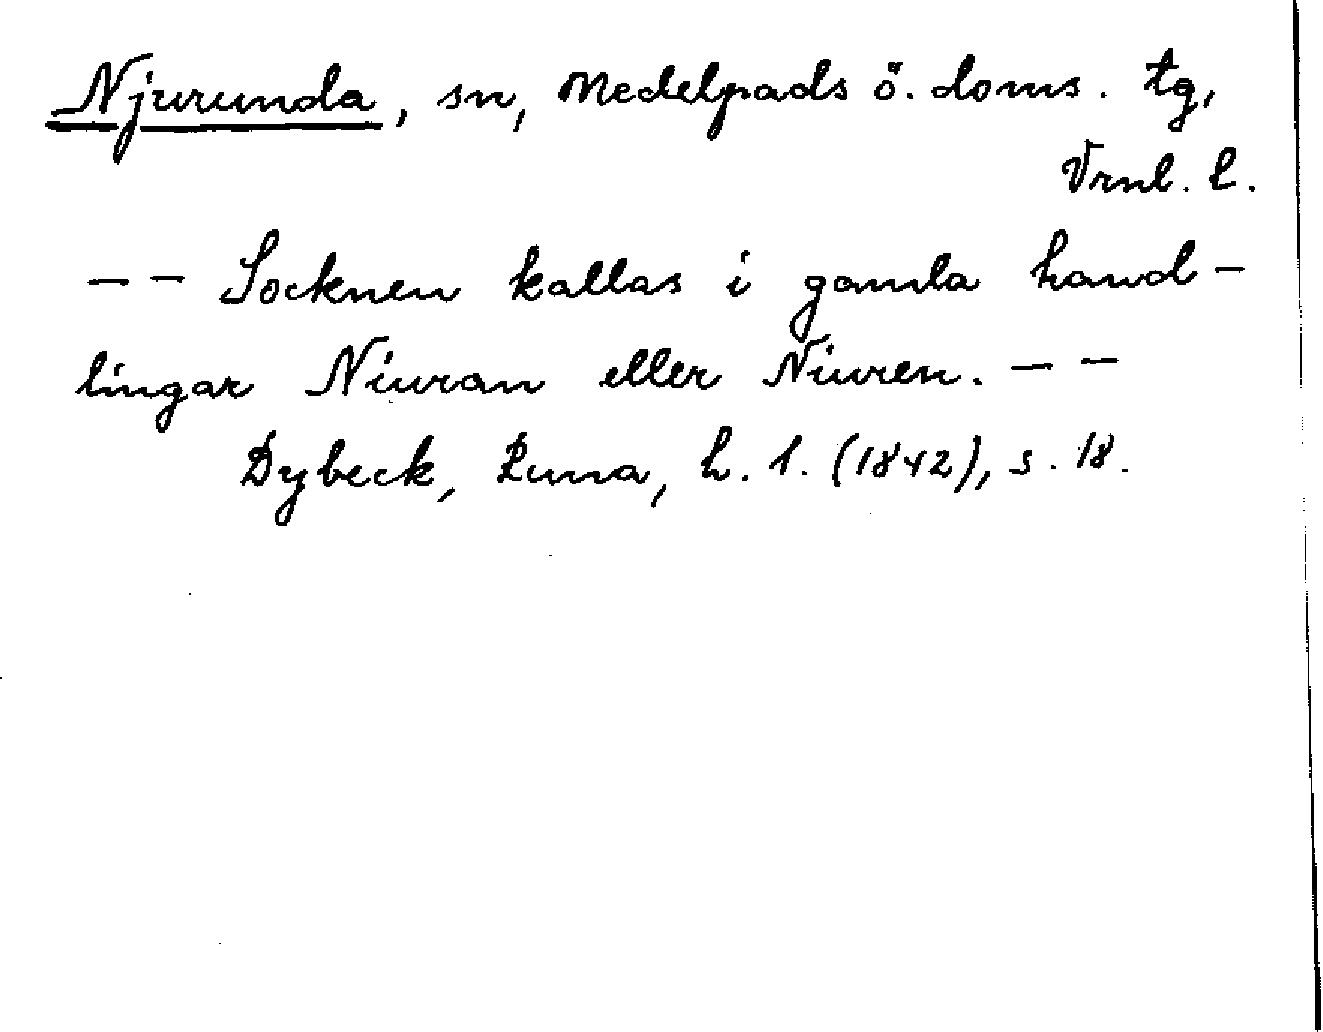 Njurunda, sn, Medelpads ö. doms. tg,
Vrnl. l.
— — Socknen kallas i gamla hand-
lingar Niuran eller Niuren. — —
Dybeck, Runa, h. 1. (1842), s. 18.